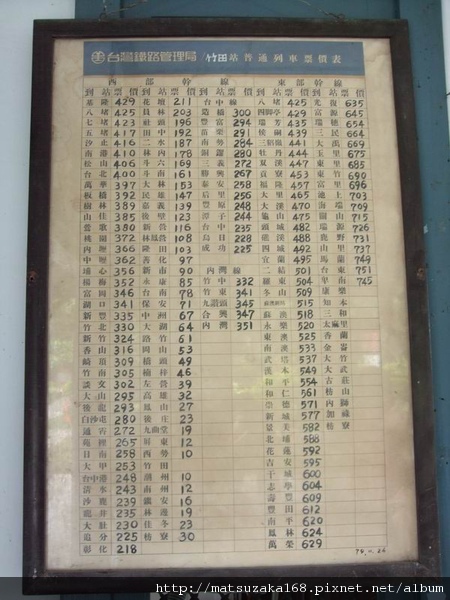 台灣鐵路管理局 竹田站普通列車票價表
西部幹線
東部幹線
到站 票價
到站 票價
到站 票價
到站 票價
到站 票價
基隆 429
八堵 425
七堵 423
五堵 417
汐止 416
南港 410
松山 406
台北 400
萬華 397
板橋 392
樹林 389
山佳 385
鶯歌 380
桃園 372
內壢 366
中壢 362
埔心 356
楊梅 352
富岡 346
湖口 341
新豐 335
竹北 330
新竹 324
香山 316
崎頂 309
竹南 305
談文 302
大山 295
後龍 293
白沙屯 280
通霄 272
苑裡 265
日南 258
大甲 253
台中港 248
清水 243
沙鹿 239
龍井 235
大肚 230
追分 225
彰化 218
花壇 211
員林 203
社頭 196
田中 192
二水 187
林內 178
斗六 169
斗南 161
大林 153
民雄 147
嘉義 139
後壁 123
新營 116
林鳳營 108
隆田 103
善化 97
新 90
永康 85
台南 78
保安 71
中洲 67
大湖 64
路竹 61
岡山 53
橋頭 49
楠梓 46
左營 39
高雄 32
鳳山 27
後庄 22
九曲堂 19
屏東 12
西勢 10
竹田
潮州 10
南州 12
鎮安 16
林邊 19
佳冬 23
枋寮 30
台中線
造橋 300
豐富 294
苗栗 291
南勢 284
銅鑼 280
三義 272
勝興 267
泰安 258
后里 256
豐原 248
潭子 244
台中 235
烏日 228
成功 225
內灣線
竹中 332
竹東 341
九讚頭 345
合興 347
內灣 351
八堵 425
四腳亭 425
瑞芳 435
侯硐 439
三貂嶺 441
牡丹 444
雙溪 447
貢寮 453
福隆 457
大溪 470
龜山 475
頭城 482
礁溪 488
四城 492
宜蘭 495
二結 501
羅東 504
冬山 509
515
518
永樂 520
東澳 525
南澳 533
武塔 537
漢本 549
和平 554
和仁 561
崇德 571
新城 577
景美 582
北埔 588
花蓮 592
吉安 595
干城 600
志學 604
壽豐 609
豐田 612
南平 620
鳳林 624
萬榮 629
光復 635
富源 645
瑞穗 654
三民 664
大禹 669
玉里 675
東里 685
東竹 690
富里 696
池上 703
關山 715
瑞源 726
鹿野 731
馬蘭 749
台東 751
卑南 745
康樂
知本
太麻里
金崙
大武
古莊
內獅
加祿
枋寮
http://matsuzaka168.pixnet.net/album